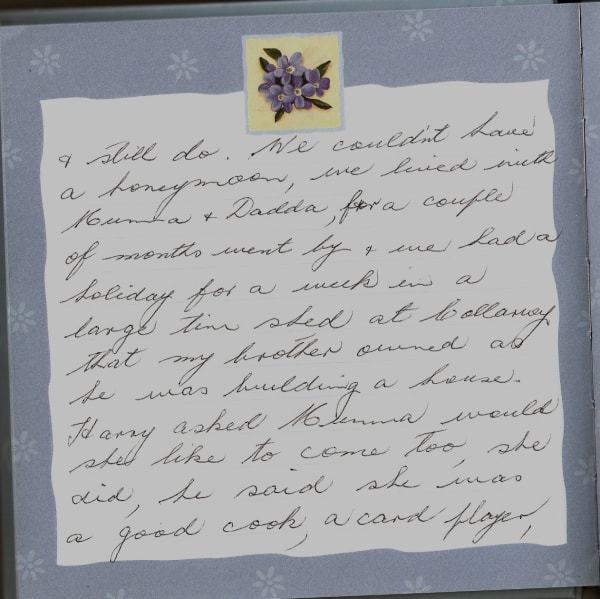 & still do. We couldn't have
a honeymoon, we lived with
Mumma & Dadda, for a couple
of months went by & we had a
holiday for a week in a
large tin shed at Collaroy
that my brother owned as
he was building a house.
Harry asked Mumma would
she like to come too, she
did, he said she was
a good cook, a card player,